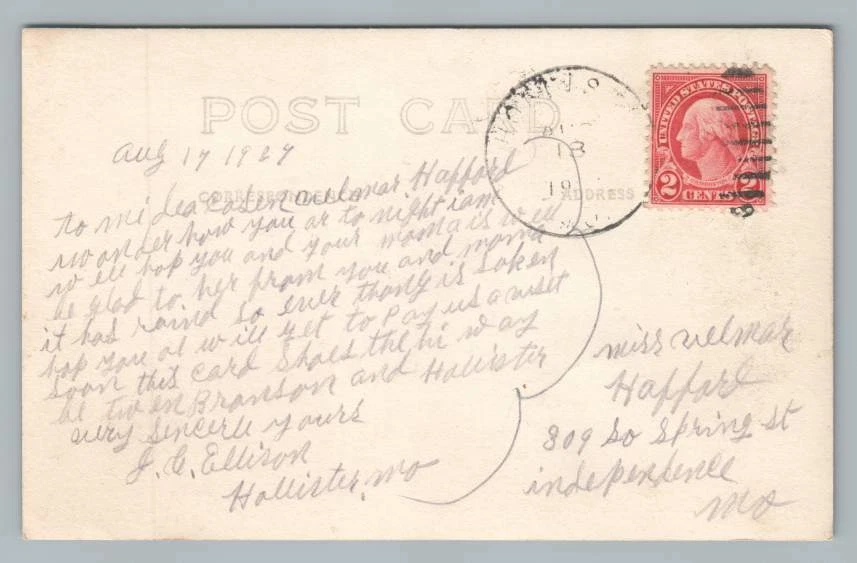 POST CARD
CORRESPONDENCE
ADDRESS
UNITED STATES POSTAGE
2 CENTS 2
18
19
Aug 17 1927
to mi dea cosen velmar Hafford
wonder how you ar to night iam
well hop you and your moma is well
be glad to her from you and moma
it has raind so ever thang is soken
hop you al will get to pay us a viset
soon this card Shoes the hi way
be twen Branson and Hollister
very sincerle yours
J. C. Ellison
Hollister, mo
miss velmar
Hafford
809 So Spring st
independence
mo